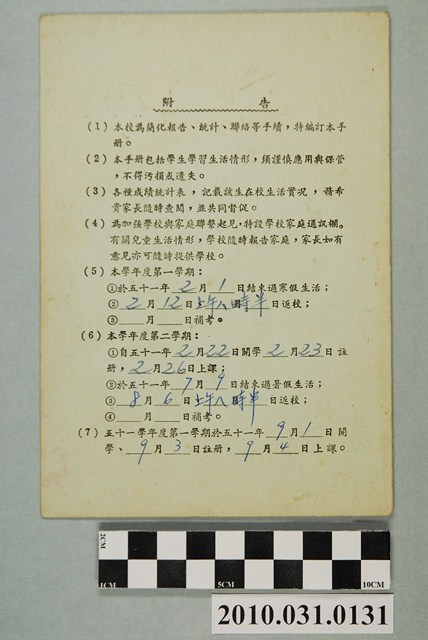 附 告
(1) 本校為簡化報告、統計、聯絡等手續，特編訂本手
冊。
(2) 本手冊包括學生學習生活情形，須謹慎應用與保管
，不得污損或遺失。
(3) 各種成績統計表，記載該生在校生活實況，務希
貴家長隨時查閱，並共同督促。
(4) 為加强學校與家庭聯繫起見，特設學校家庭通訊欄。
有關兒童生活情形，學校隨時報告家庭，家長如有
意見亦可隨時提供學校。
(5) 本學年度第一學期：
①於五十一年 2 月 1 日結束過寒假生活；
② 2 月 12 日上午八時半日返校；
③ 月 日補考。
(6) 本學年度第二學期：
①自五十一年 2 月 22 日開學 2 月 23 日註
冊，2 月 26 日上課；
②於五十一年 7 月 9 日結束過暑假生活；
③ 8 月 6 日上午八時半日返校；
④ 月 日補考。
(7) 五十一學年度第一學期於五十一年 9 月 1 日開
學、9 月 3 日註冊，9 月 4 日上課。
2CM
1CM 5CM 10CM
2010.031.0131